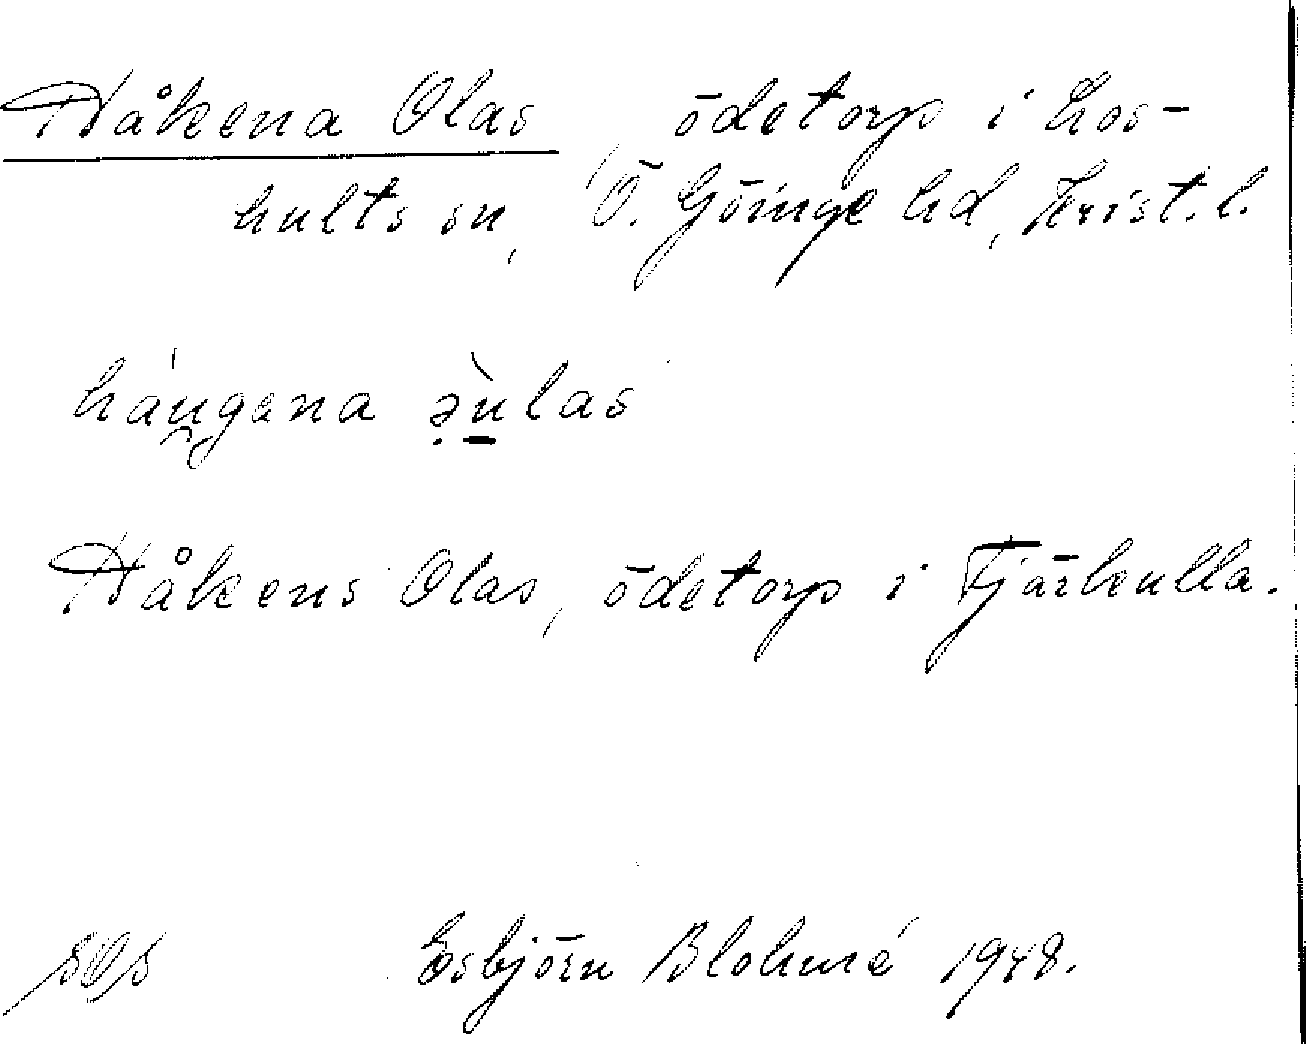 Håkena Olas, ödetorp i Los-
hults sn, Ö. Göinge hd, Krist. l.
håugena əùlas
Håkens Olas, ödetorp i Tjärkulla.
Esbjörn Blohmé 1948.